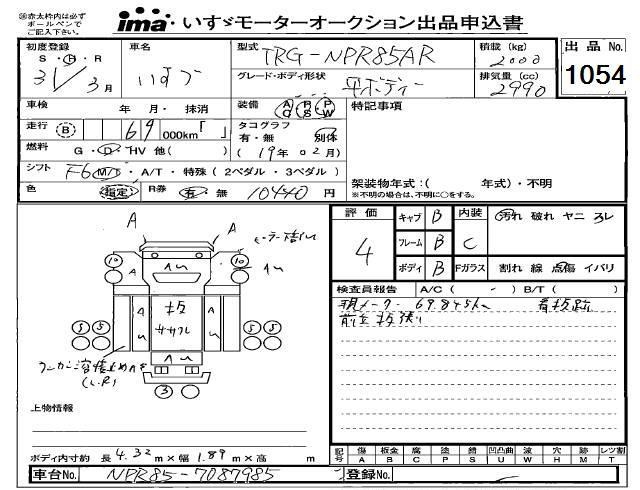 ※赤太枠内は必ず
ボールペンで
ご記入下さい。
ima いすゞモーターオークション出品申込書
初度登録 車名 型式 TRG-NPR85AR 積載 (kg) 2000 出品 No. 1054
S・H・R 31/3月 いすゞ グレード・ボディ形状 平ボディー 排気量 (cc) 2990
車検 年 月・ 抹消 装備 AC PS PW 特記事項
走行 (B) 69 000km「 」 タコグラフ 有・無 別体
燃料 G・D・HV 他( ) (19年02月)
シフト F6 M/T・A/T・特殊(2ペダル・3ペダル) 架装物年式:( 年式)・不明
色 指定 R券 有 無 10440 円 ※不明の場合は、不明に○をする。
評価 4 キャブ B 内装 C 汚れ 破れ ヤニ スレ
フレーム B
ボディ B Fガラス 割れ 線 点傷 イバリ
検査員報告 A/C ( - ) B/T ( )
現メーター 69,845km 看板跡
A A
10 10
A A
AU
5 5 5 5
3
(L.R)
上物情報
ボディ内寸約 長 4.32 m×幅 1.89 m×高 m
記号 傷 板金 腐 塗 錆 凹凸曲 波 穴 跡 レツ割
A B C P S U W H M T
車台No. NPR85-7087985 登録No.